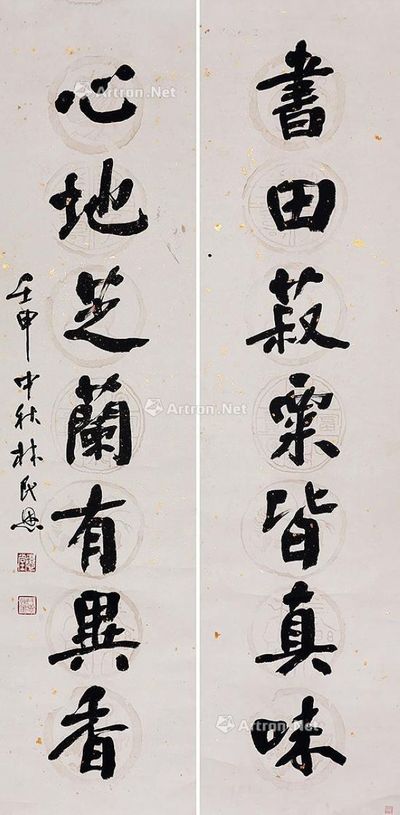 書田菽粟皆真味
心地芝蘭有異香
壬申中秋林民恩
Artron.Net
Artron.Net
Artron.Net
Artron.Net